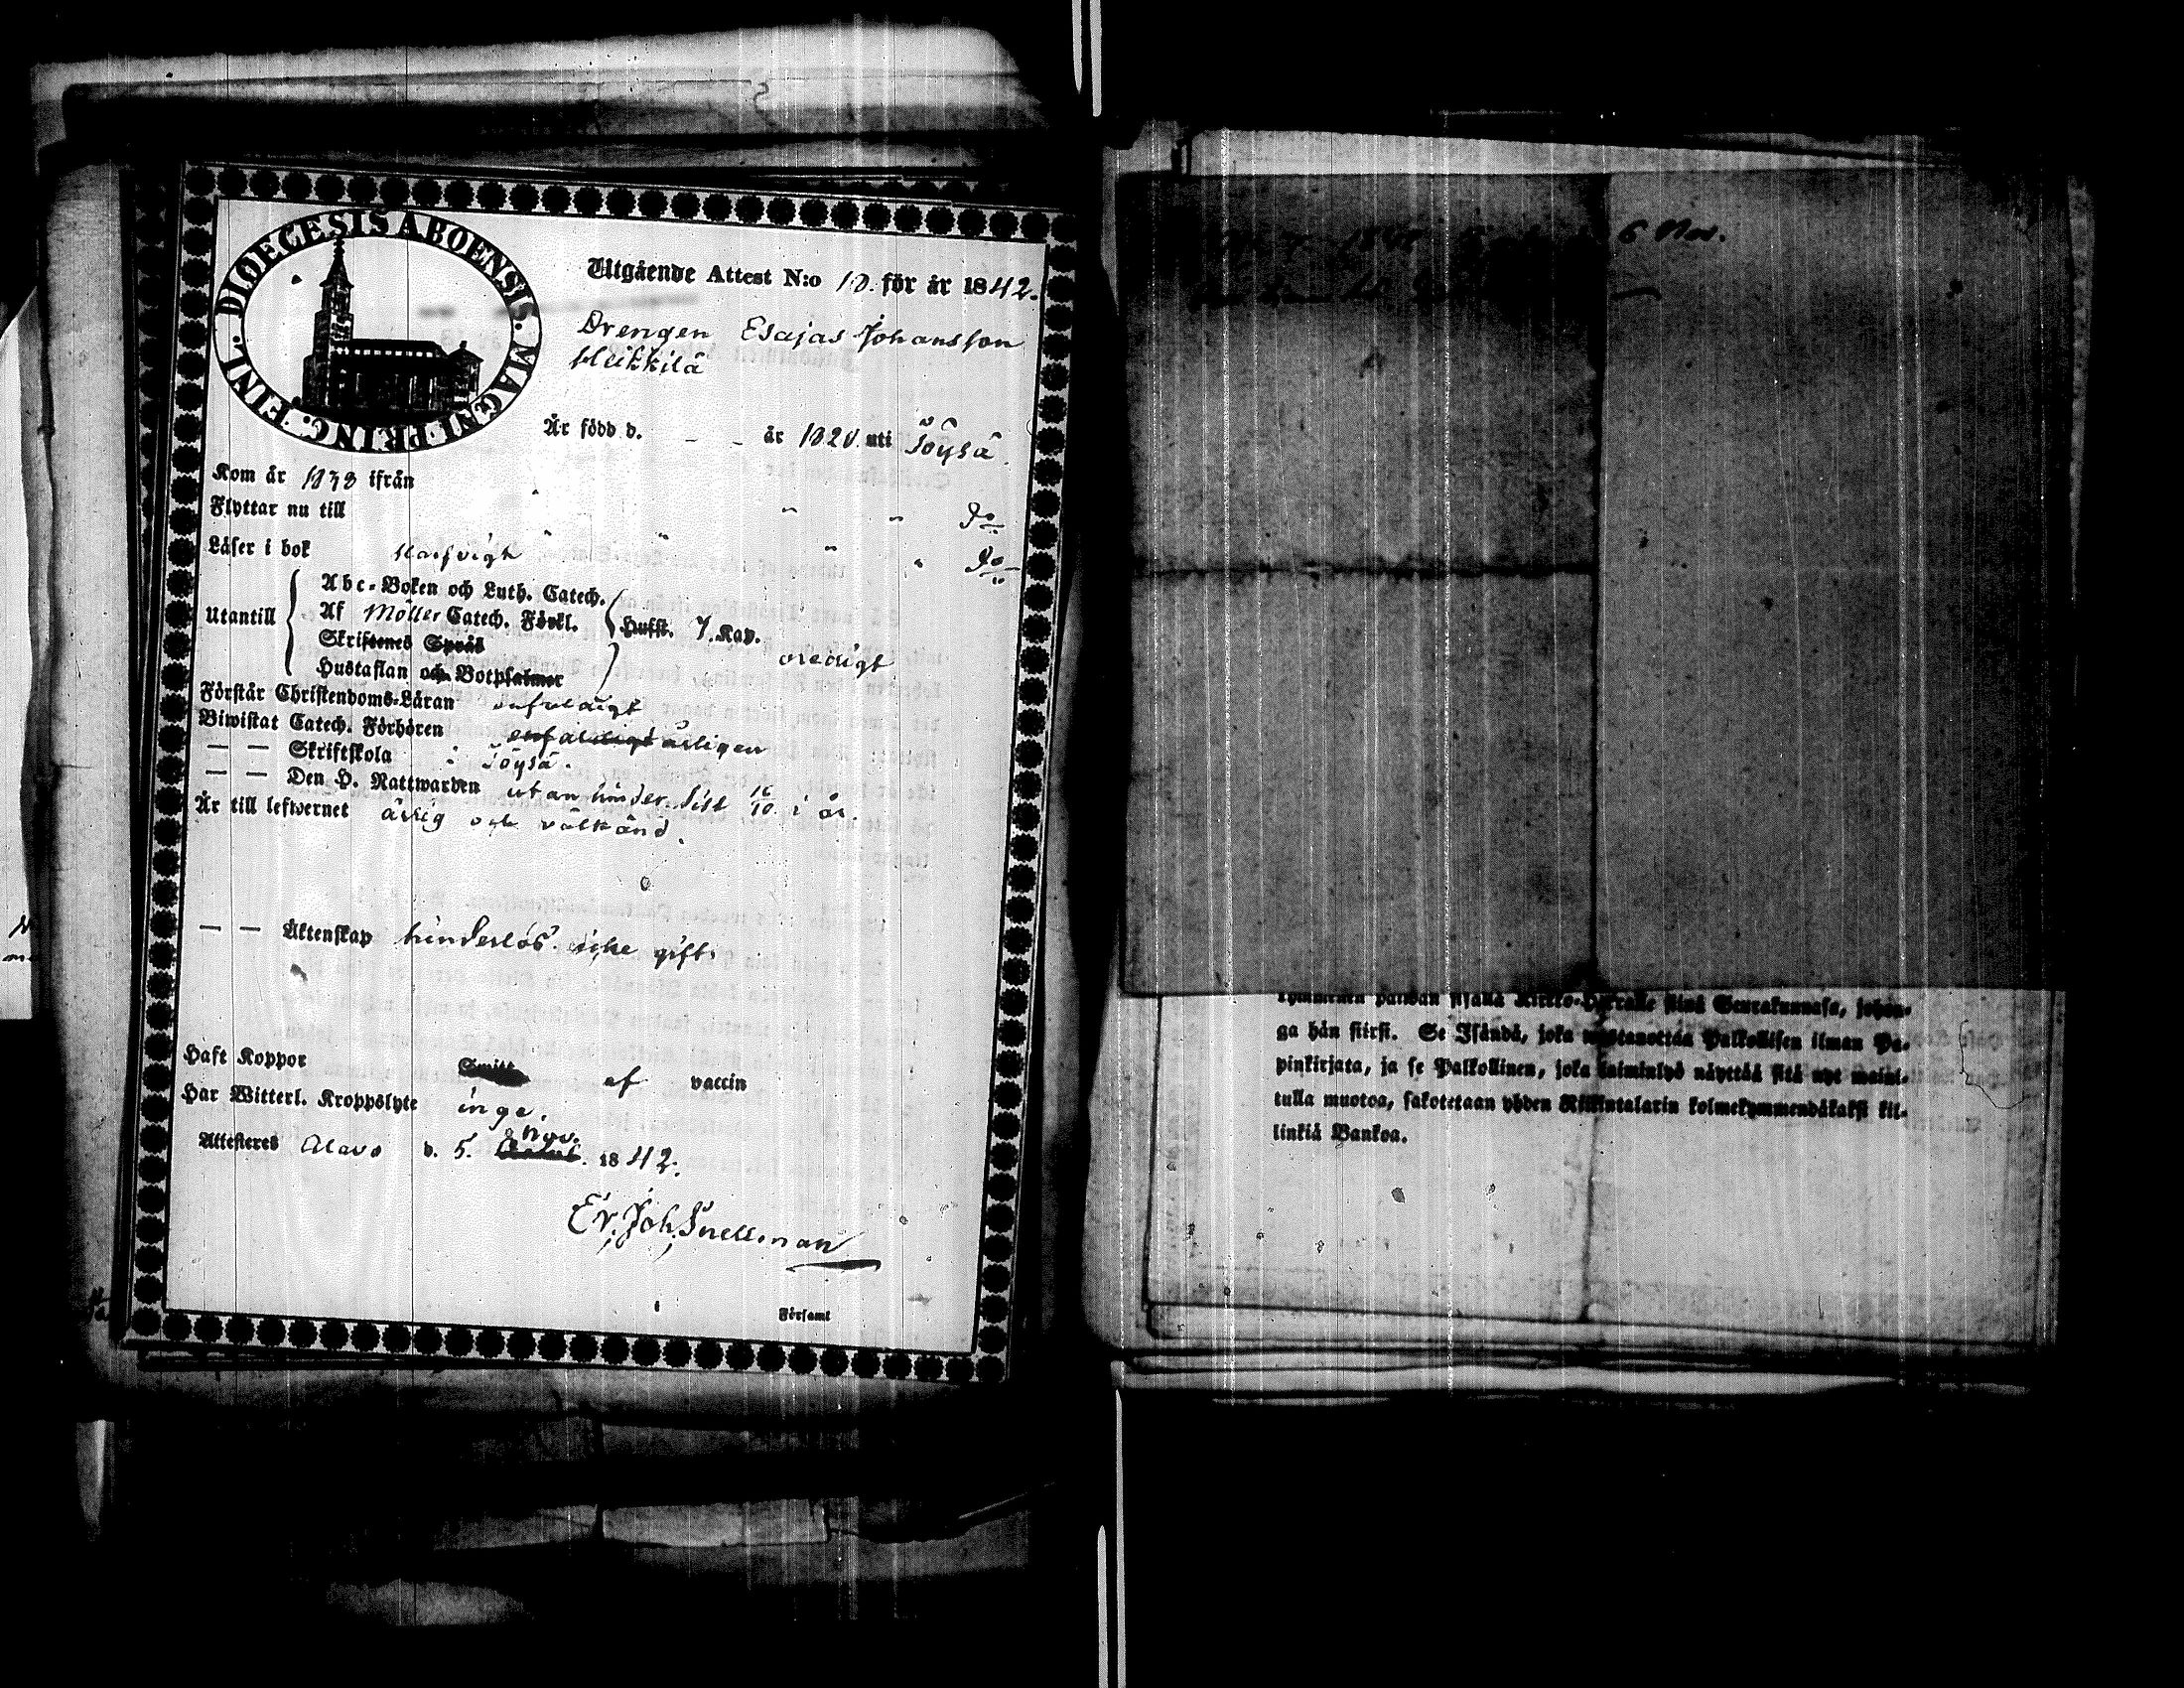 DIOECESIS ABOENSIS. MAGNI PRINC. FINL.
Utgående Attest N:o 10. för år 1842.
Drengen Esajas Johansson
Heikkilä
Är född d. - - år 1820. uti Töysä.
Kom år 1838 ifrån " " " Do
Flyttar nu till " " " " Do
Läser i bok
Abc-Boken och Luth. Catech.
Utantill Af Möller Catech. Förkl. Husst. 7. Kap.
Skriftenes Språk
oredigt
Hustaflan och Botpsalmer
Förstår Christendoms-Läran enfaldigt
Biwistat Catech. Förhören enfaldigt årligen
— — Skriftskola i Töysä.
— — Den H. Nattwarden utan hinder. Sist 16/10. i år.
Är till lefwernet ärlig och välkänd.
— — Äktenskap hinderlös. icke gift.
Haft Koppor af vaccin
Har Witterl. Kroppslyte inga.
Attesteres Alavo d. 5. Nov. 1842.
Er. Joh. Snellman
Församt
6 Nov.
ga hän siirsi. Se Isändä, joka wastanottaa Palkollisen ilman Pa-
pinkirjata, ja se Palkollinen, joka laiminlyö näyttää sitä nyt maini-
tulla muotoa, sakotetaan yhden Riikintalarin kolmekymmendäkaksi kil-
linkiä Bankoa.